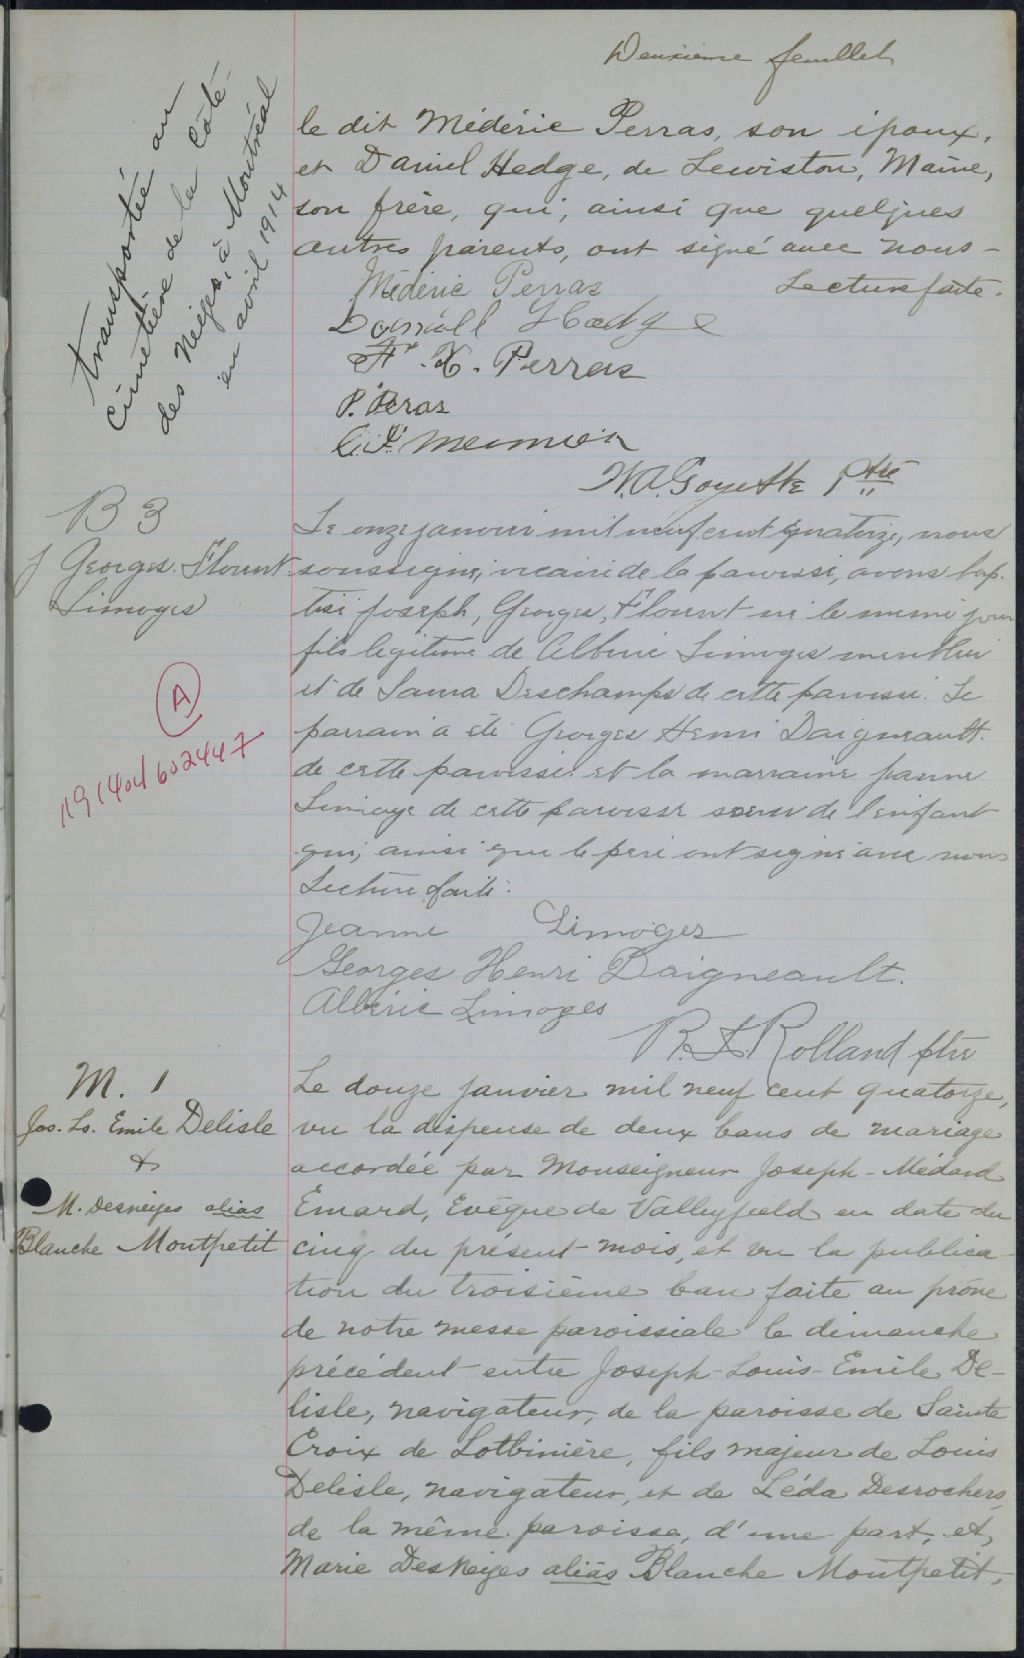 Deuxième feuillet
transportée au
cimetière de la Côté-
des Neiges, à Montréal
en avril 1914
le dit Médéric Perras, son époux,
et Daniel Hedge, de Lewiston, Maine,
son frère, qui, ainsi que quelques
autres parents, ont signé avec nous-
Lecture faite.
Médéric Perras
Daniell Hedge
F. X. Perras
P. Peras
Meunier
W.A. Goyette Ptre
B 3
J Georges. Flourent
Limoges
Le onze janvier mil neuf cent quatorze, nous
soussigné, vicaire de la paroisse, avons bap-
tisé Joseph, Georges, Flourent né le même jour
fils légitime de Albéric Limoges
et de Laura Deschamps de cette paroisse. Le
parrain a été Georges Henri Daigneault.
de cette paroisse et la marraine Jeanne
Limoge de cette paroisse soeur de l'enfant
qui, ainsi que le père ont signé avec nous
Lecture faite.
Jeanne Limoges
Georges Henri Daigneault.
Albéric Limoges
R. L. Rolland ptre
A
1191404602447
M. 1
Jos. Ls. Emile Delisle
&
M. Desneiges alias
Blanche Montpetit
Le douze janvier mil neuf cent quatorze,
vu la dispense de deux bans de mariage
accordée par Monseigneur Joseph-Médard
Emard, Evêque de Valleyfield en date du
cinq du présent mois, et vu la publica-
tion du troisième ban faite au prône
de notre messe paroissiale le dimanche
précédent entre Joseph-Louis-Emile De-
lisle, navigateur, de la paroisse de Sainte
Croix de Lotbinière, fils majeur de Louis
Delisle, navigateur, et de Léda Desrochers,
de la même paroisse, d'une part, et,
Marie DesNeiges alias Blanche Montpetit,